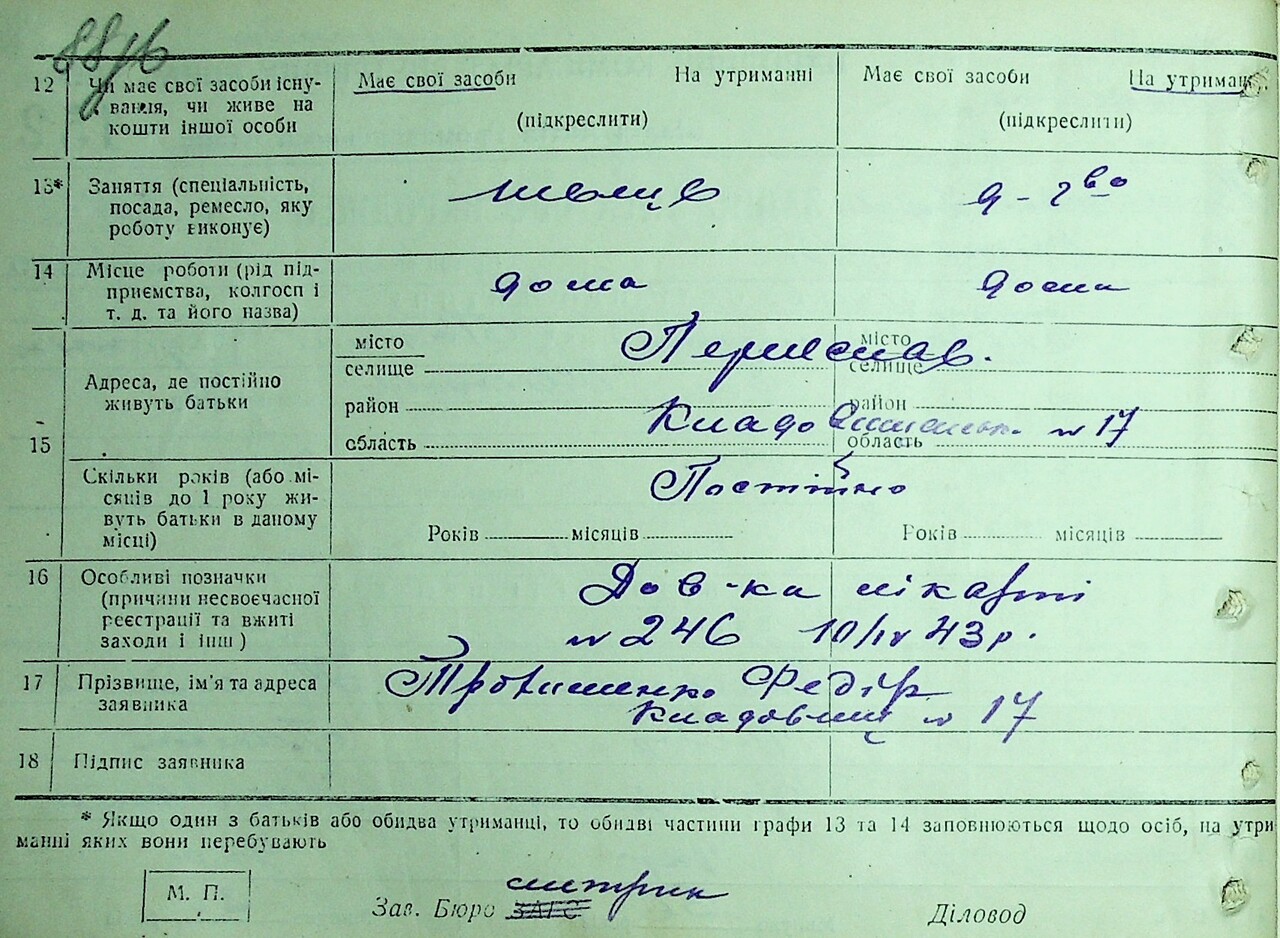 88/16
12 Чи має свої засоби існу- Має свої засоби На утриманні Має свої засоби На утриман
вання, чи живе на
кошти іншої особи (підкреслити) (підкреслити)
13* Заняття (спеціальність, швець д-гво
посада, ремесло, яку
роботу виконує)
14 Місце роботи (рід під- дома дома
приємства, колгосп і
т. д. та його назва)
місто Переяслав. місто
селище селище
Адреса, де постійно
живуть батьки
район район
15 область Кладовищенськ. № 17 область
Скільки років (або мі- Постійно
сяців до 1 року жи-
вуть батьки в даному
місці) Років місяців Років місяців
16 Особливі позначки Дов-ка лікарні
(причини несвоєчасної
реєстрації та вжиті № 246 10/IV 43 р.
заходи і інш)
17 Прізвище, ім'я та адреса Федір
заявника № 17
18 Підпис заявника
* Якщо один з батьків або обидва утриманці, то обидві частини графи 13 та 14 заповнюються щодо осіб, на утри-
манні яких вони перебувають
М. П. Зав. Бюро ЗАГС Діловод